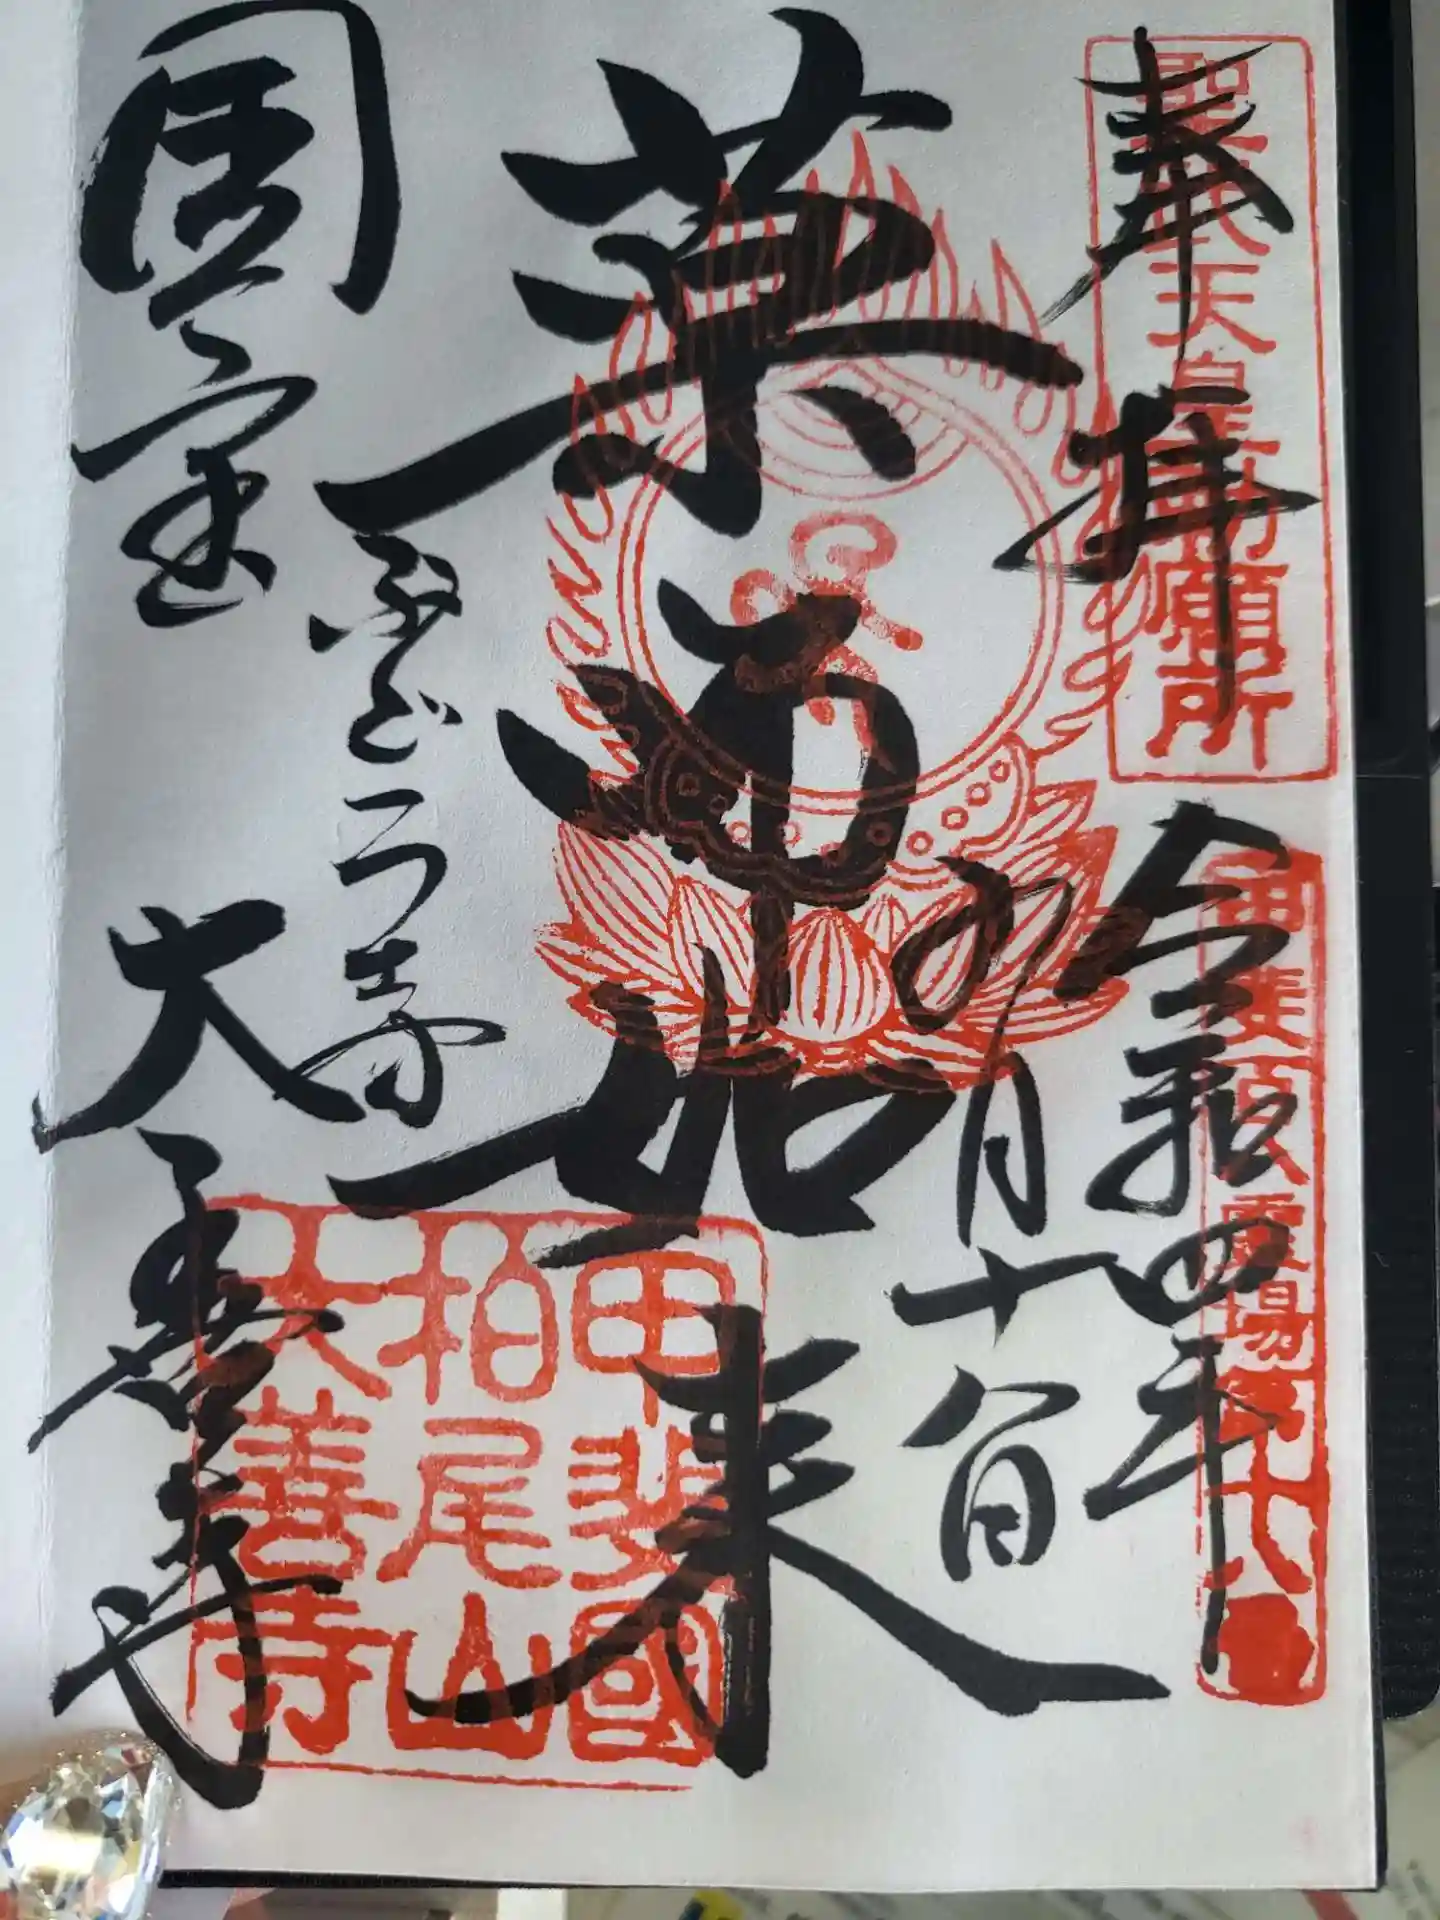 奉拝
聖武天皇勅願所
令和四年
月十八日
甲斐百八靈場第十八
薬師如来
ぶどう寺
国宝 大善寺
甲斐國
柏尾山
大善寺